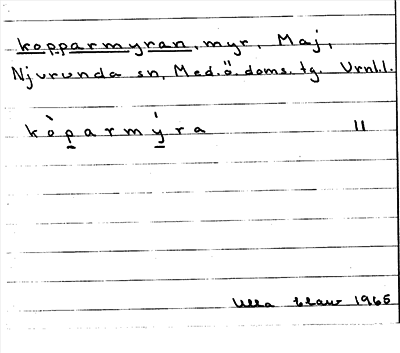 kopparmyran, myr, Maj,
Njurunda sn, Med.ö.doms.tg. Vrnl.l.
kòp̲armý̲ra 11
Ulla Claw 1965